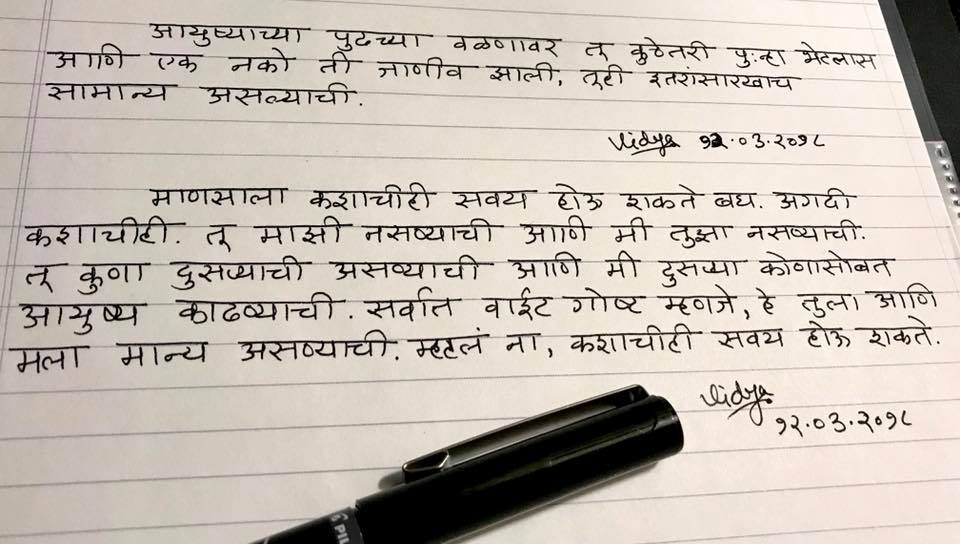 आयुष्याच्या पुढच्या वळणावर तू कुठेतरी पु:न्हा भेटलास
आणि एक नको ती जाणीव झाली, तूही इतरांसारखाच
सामान्य असल्याची.
Vidya १२.०३.२०१८
माणसाला कशाचीही सवय होऊ शकते बघ. अगदी
कशाचीही. तू माझी नसण्याची आणि मी तुझा नसण्याची.
तू कुणा दुसऱ्याची असण्याची आणि मी दुसऱ्या कोणासोबत
आयुष्य काढण्याची. सर्वात वाईट गोष्ट म्हणजे, हे तुला आणि
मला मान्य असण्याची. म्हटलं ना, कशाचीही सवय होऊ शकते.
Vidya
१२.०३.२०१८